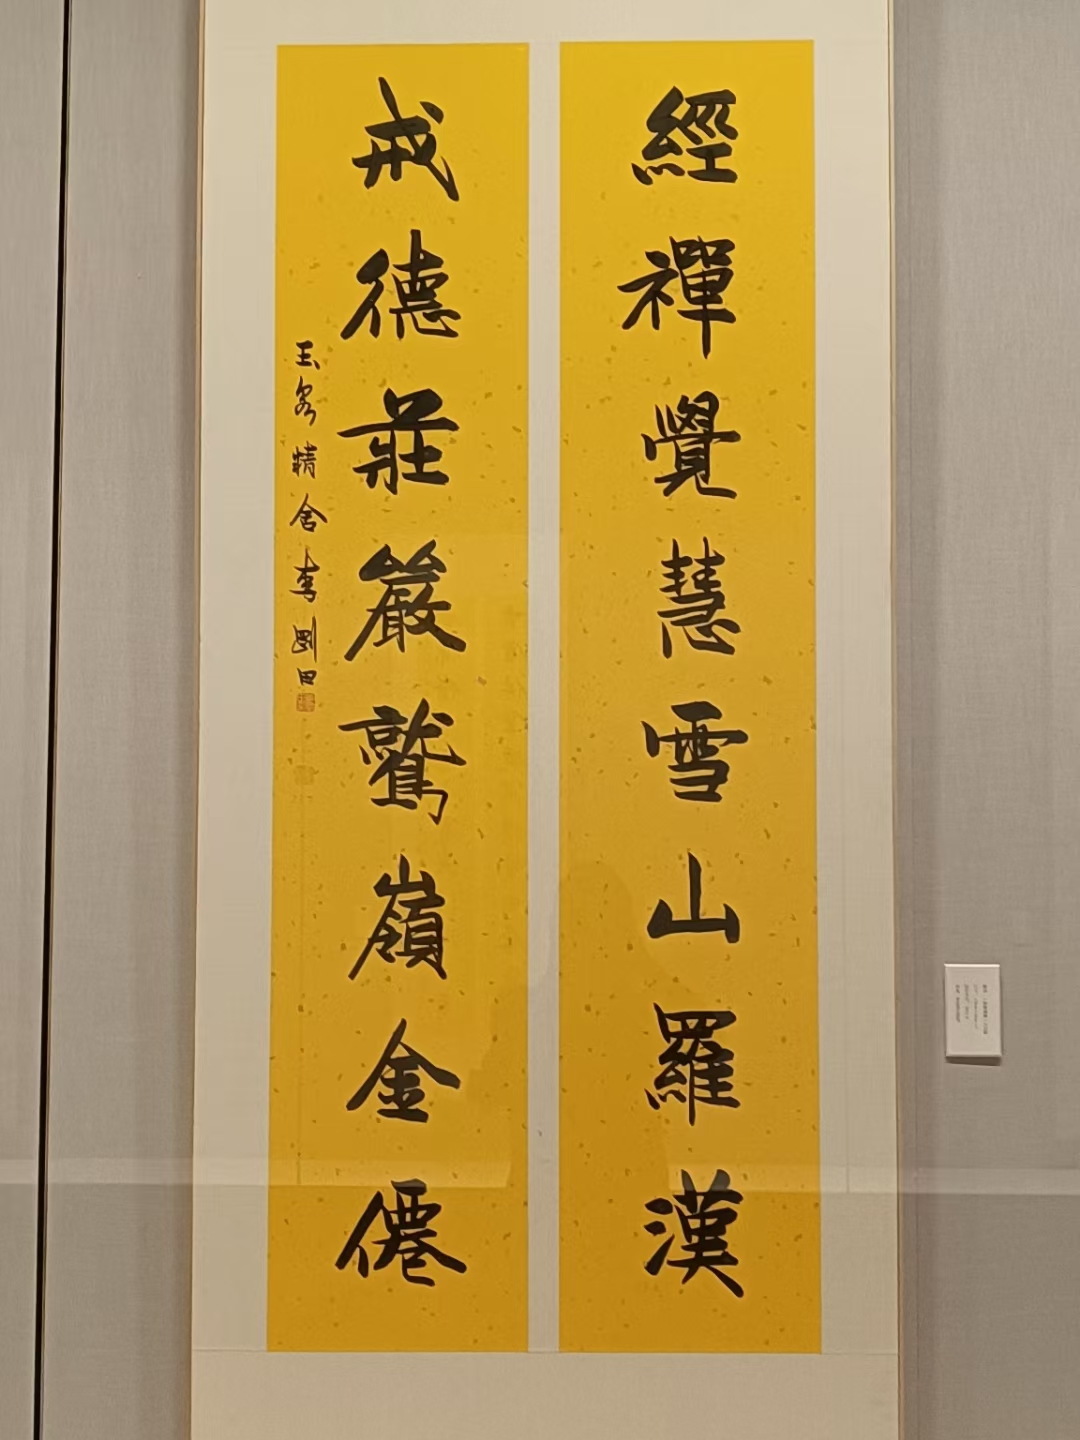 經禪覺慧雪山羅漢
戒德莊嚴鷲嶺金僊
玉泉精舍李剛田